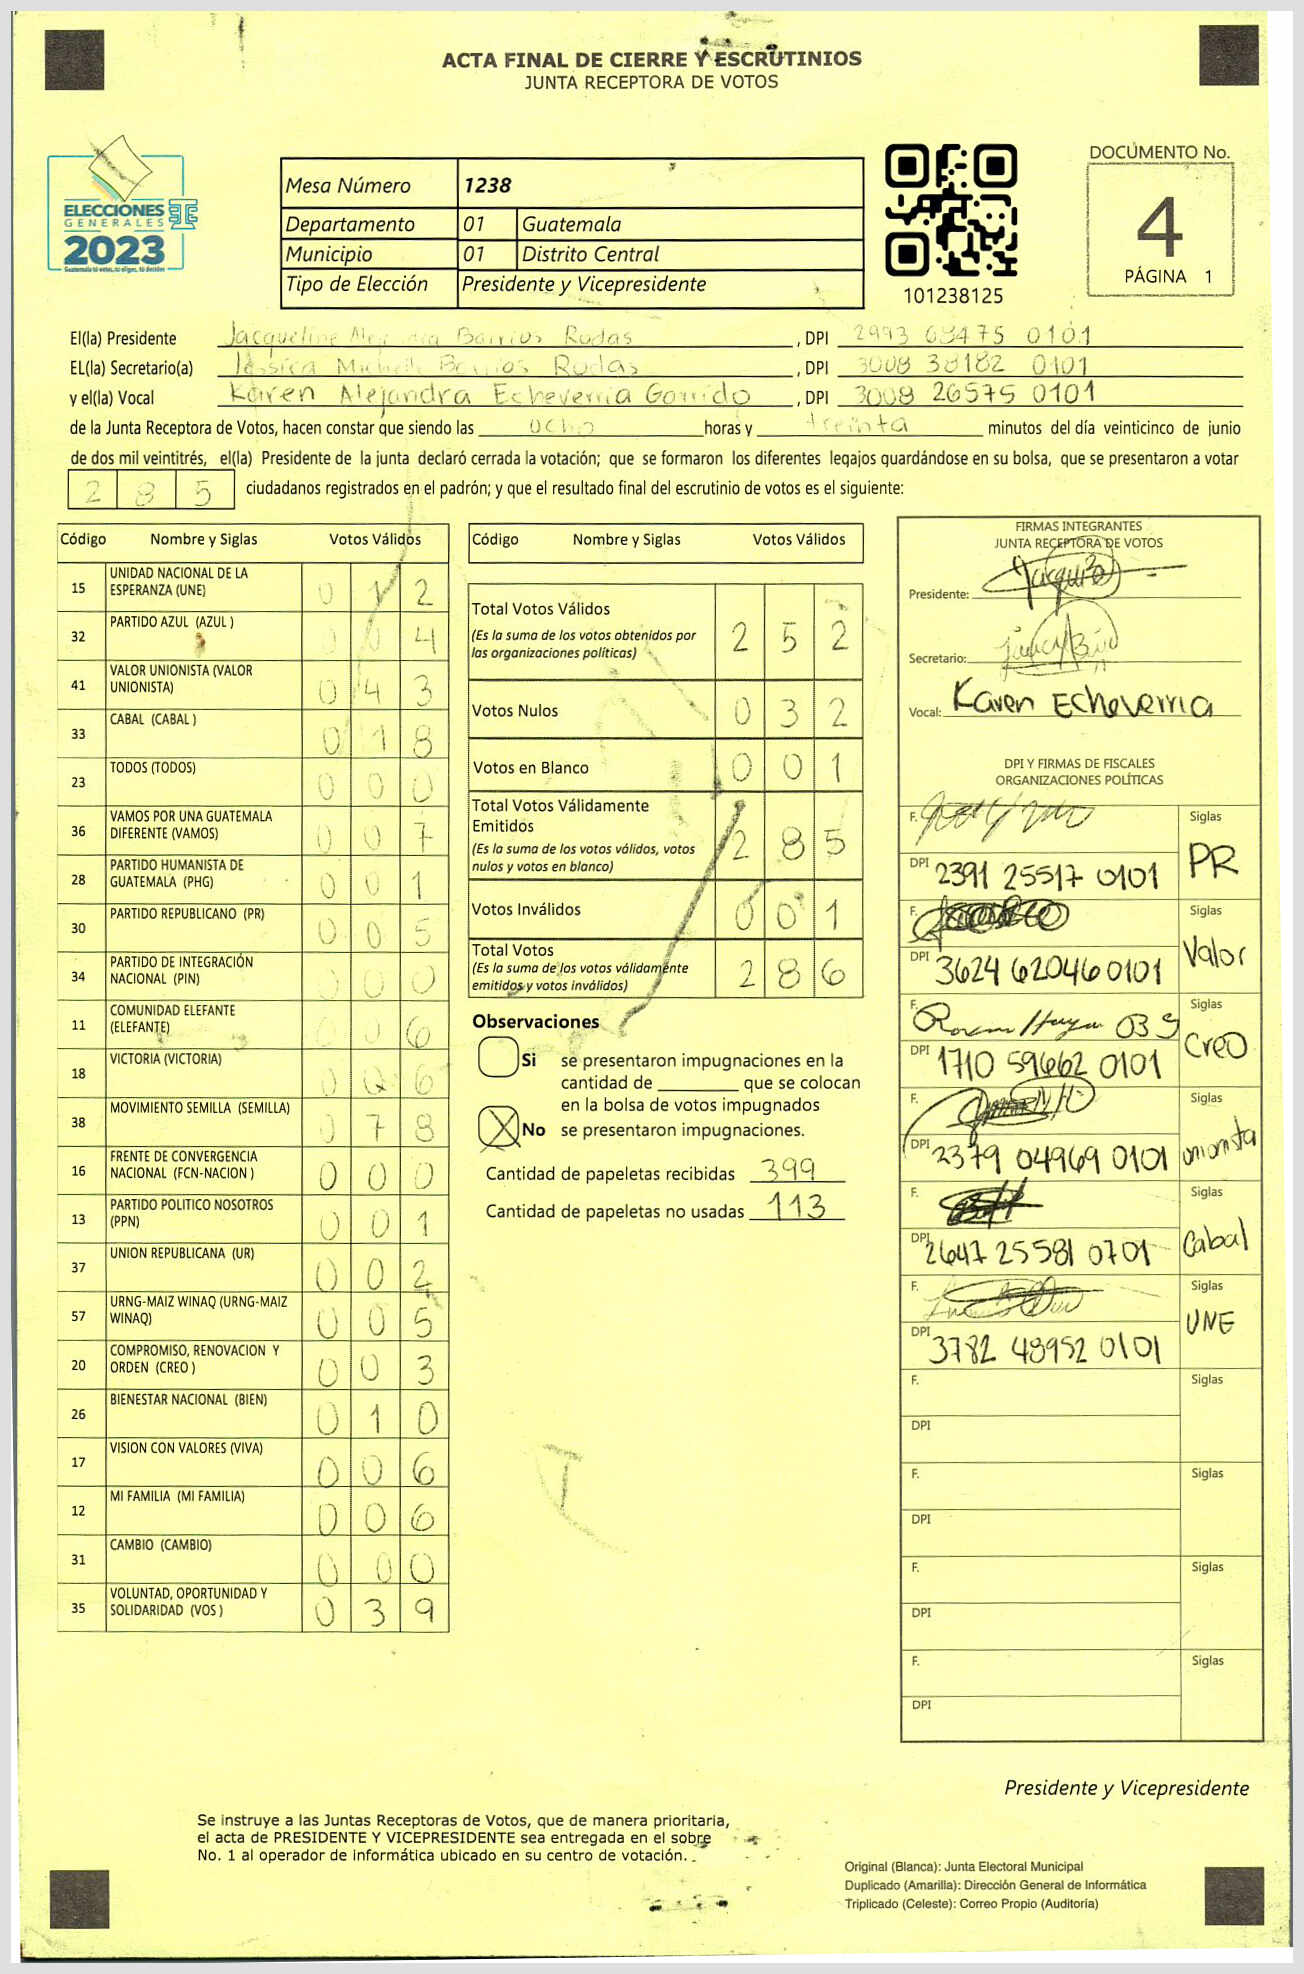 ACTA FINAL DE CIERRE Y ESCRUTINIOS
JUNTA RECEPTORA DE VOTOS
ELECCIONES
GENERALES
2023
Guatemala tú votas, tú eliges, tú decides
Mesa Número 1238
Departamento 01 Guatemala
Municipio 01 Distrito Central
Tipo de Elección Presidente y Vicepresidente
101238125
DOCUMENTO No.
4
PÁGINA 1
El(la) Presidente Jacqueline Barrios Rodas, DPI 2993 68475 0101
EL(la) Secretario(a) Jessica Michelle Barrios Rodas, DPI 3008 38182 0101
y el(la) Vocal Karen Alejandra Echeverria Garrido, DPI 3008 26575 0101
de la Junta Receptora de Votos, hacen constar que siendo las ocho horas y treinta minutos del día veinticinco de junio
de dos mil veintitrés, el(la) Presidente de la junta declaró cerrada la votación; que se formaron los diferentes legajos guardándose en su bolsa, que se presentaron a votar
285 ciudadanos registrados en el padrón; y que el resultado final del escrutinio de votos es el siguiente:
Código Nombre y Siglas Votos Válidos
15 UNIDAD NACIONAL DE LA ESPERANZA (UNE) 012
32 PARTIDO AZUL (AZUL ) 004
41 VALOR UNIONISTA (VALOR UNIONISTA) 043
33 CABAL (CABAL ) 018
23 TODOS (TODOS) 000
36 VAMOS POR UNA GUATEMALA DIFERENTE (VAMOS) 007
28 PARTIDO HUMANISTA DE GUATEMALA (PHG) 001
30 PARTIDO REPUBLICANO (PR) 005
34 PARTIDO DE INTEGRACIÓN NACIONAL (PIN) 000
11 COMUNIDAD ELEFANTE (ELEFANTE) 006
18 VICTORIA (VICTORIA) 006
38 MOVIMIENTO SEMILLA (SEMILLA) 078
16 FRENTE DE CONVERGENCIA NACIONAL (FCN-NACION ) 000
13 PARTIDO POLITICO NOSOTROS (PPN) 001
37 UNION REPUBLICANA (UR) 002
57 URNG-MAIZ WINAQ (URNG-MAIZ WINAQ) 005
20 COMPROMISO, RENOVACION Y ORDEN (CREO ) 003
26 BIENESTAR NACIONAL (BIEN) 010
17 VISION CON VALORES (VIVA) 006
12 MI FAMILIA (MI FAMILIA) 006
31 CAMBIO (CAMBIO) 000
35 VOLUNTAD, OPORTUNIDAD Y SOLIDARIDAD (VOS ) 039
Código Nombre y Siglas Votos Válidos
Total Votos Válidos 252
(Es la suma de los votos obtenidos por
las organizaciones políticas)
Votos Nulos 032
Votos en Blanco 001
Total Votos Válidamente
Emitidos 285
(Es la suma de los votos válidos, votos
nulos y votos en blanco)
Votos Inválidos 001
Total Votos 286
(Es la suma de los votos válidamente
emitidos y votos inválidos)
Observaciones
Si se presentaron impugnaciones en la
cantidad de ________ que se colocan
en la bolsa de votos impugnados
X No se presentaron impugnaciones.
Cantidad de papeletas recibidas 399
Cantidad de papeletas no usadas 113
FIRMAS INTEGRANTES
JUNTA RECEPTORA DE VOTOS
Presidente:
Secretario:
Vocal: Karen Echeverria
DPI Y FIRMAS DE FISCALES
ORGANIZACIONES POLÍTICAS
F. Siglas
DPI 2391 25517 0101 PR
F. Siglas
DPI 3624 62046 0101 Valor
F. Siglas
DPI 1710 59662 0101 CREO
F. Siglas
DPI 2379 04969 0101 unionista
F. Siglas
DPI 2647 25581 0701 Cabal
F. Siglas
DPI 3782 48952 0101 UNE
F. Siglas
DPI
F. Siglas
DPI
F. Siglas
DPI
F. Siglas
DPI
Presidente y Vicepresidente
Se instruye a las Juntas Receptoras de Votos, que de manera prioritaria,
el acta de PRESIDENTE Y VICEPRESIDENTE sea entregada en el sobre
No. 1 al operador de informática ubicado en su centro de votación.
Original (Blanca): Junta Electoral Municipal
Duplicado (Amarilla): Dirección General de Informática
Triplicado (Celeste): Correo Propio (Auditoría)